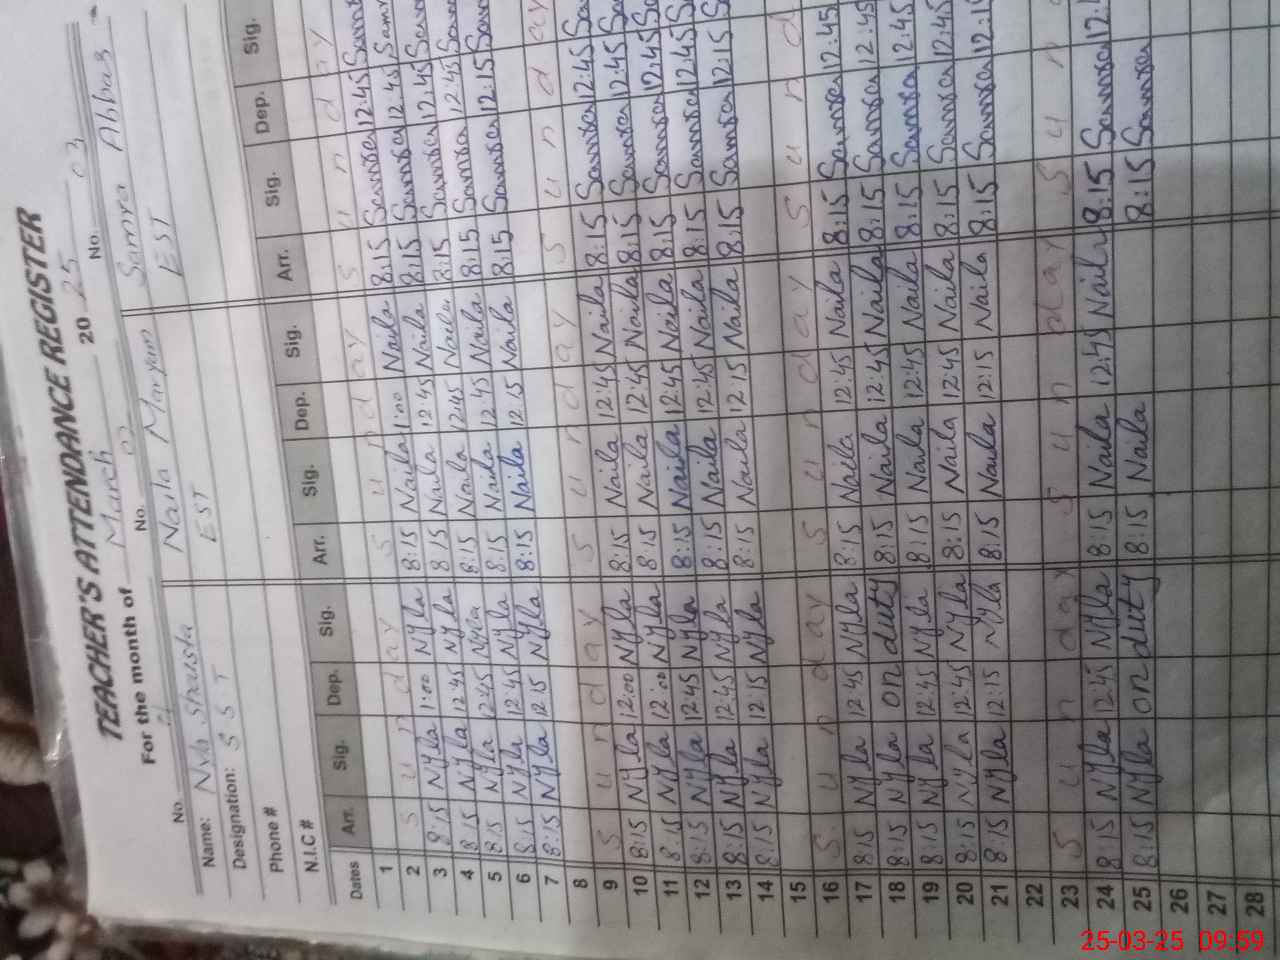 TEACHER'S ATTENDANCE REGISTER
For the month of March 03 2025 03
No. No. No.
Name: Nyla Shaista Naila Maryam Samra Abbas
Designation: SST EST EST
Phone #
N.I.C #
Dates Arr. Sig. Dep. Sig. Arr. Sig. Dep. Sig. Arr. Sig. Dep. Sig.
1
2 Sunday Sunday Sunday
3 8:15 Nyla 1:00 Nyla 8:15 Naila 1:00 Naila 8:15 Samra 12:45
4 8:15 Nyla 12:45 Nyla 8:15 Naila 12:45 Naila 8:15 Samra 12:45
5 8:15 Nyla 12:45 Nyla 8:15 Naila 12:45 Naila 8:15 Samra 12:45
6 8:15 Nyla 12:45 Nyla 8:15 Naila 12:45 Naila 8:15 Samra 12:45
7 8:15 Nyla 12:15 Nyla 8:15 Naila 12:15 Naila 8:15 Samra 12:15
8
9 Sunday Sunday Sunday
10 8:15 Nyla 12:00 Nyla 8:15 Naila 12:45 Naila 8:15 Samra 12:45
11 8:15 Nyla 12:00 Nyla 8:15 Naila 12:45 Naila 8:15 Samra 12:45
12 8:15 Nyla 12:45 Nyla 8:15 Naila 12:45 Naila 8:15 Samra 12:45
13 8:15 Nyla 12:45 Nyla 8:15 Naila 12:45 Naila 8:15 Samra 12:45
14 8:15 Nyla 12:15 Nyla 8:15 Naila 12:15 Naila 8:15 Samra 12:15
15
16 Sunday Sunday Sund
17 8:15 Nyla 12:45 Nyla 8:15 Naila 12:45 Naila 8:15 Samra 12:45
18 8:15 Nyla on duty 8:15 Naila 12:45 Naila 8:15 Samra 12:45
19 8:15 Nyla 12:45 Nyla 8:15 Naila 12:45 Naila 8:15 Samra 12:45
20 8:15 Nyla 12:45 Nyla 8:15 Naila 12:45 Naila 8:15 Samra 12:45
21 8:15 Nyla 12:15 Nyla 8:15 Naila 12:15 Naila 8:15 Samra
22
23 Sunday Sunday Sun
24 8:15 Nyla 12:45 Nyla 8:15 Naila 12:45 Naila 8:15 Samra
25 8:15 Nyla on duty 8:15 Naila 8:15 Samra
26
27
28
25-03-25 09:59